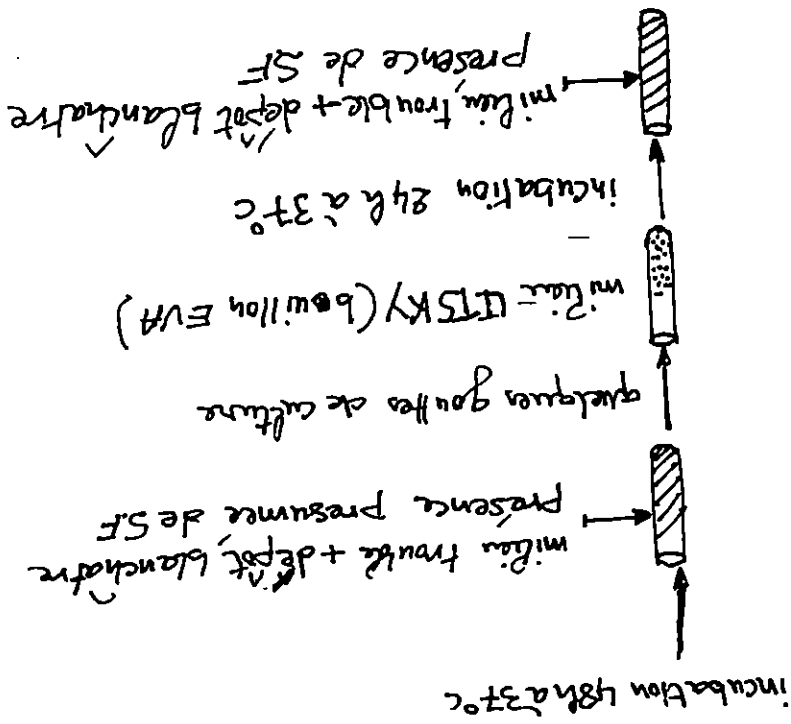 incubation 48h à 37°C
milieu trouble + dépôt blanchâtre
présence presumée de S.F
quelques gouttes de culture
milieu = LITSKY (bouillon EVA)
incubation 24h à 37°C
milieu trouble + dépôt blanchâtre
présence de S.F